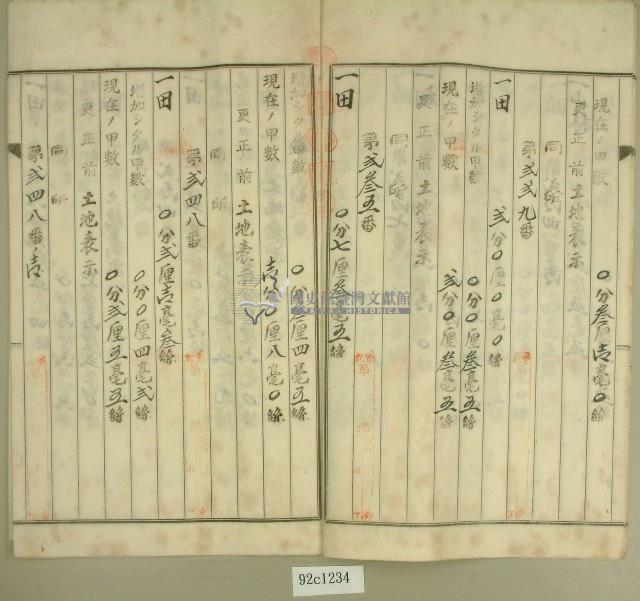 現在ノ甲数 〇分叁厘壱毫〇絲
更正前土地表示
同所
第弐弐九番
一田 弐分〇厘〇毫〇絲
増加シタル甲数 〇分〇厘叁毫五絲
現在ノ甲数 弐分〇厘叁毫五絲
更正前土地表示
同所
第弐叁五番
一田 〇分七厘叁毫五絲
増加シタル甲数 〇分〇厘四毫五絲
現在ノ甲数 〇厘八毫〇絲
更正前土地表示
同所
第弐四八番
一田 〇分弐厘壱毫叁絲
増加シタル甲数 〇分〇厘四毫弐絲
現在ノ甲数 〇分弐厘五毫五絲
更正前土地表示
同所
第弐四八番ノ壱
國史館臺灣文獻館
TAIWAN HISTORICA
92c1234